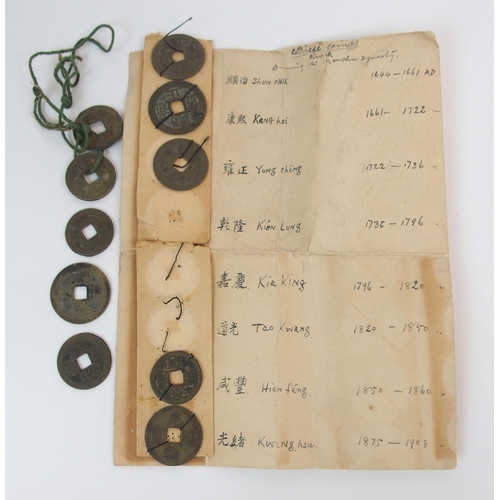 Chinese Coins
struck
During the Manchu Dynasty.
順治 Shun Chih 1644 — 1661 AD.
康熙 Kang hsi 1661 — 1722 "
雍正 Yung Chêng 1722 — 1736 "
乾隆 Kien Lung 1736 — 1796 "
嘉慶 Kia King 1796 — 1820 "
道光 Tao Kwang 1820 — 1850 "
咸豐 Hien fêng 1850 — 1860 "
光緒 Kwang hsu 1875 — 1908 "